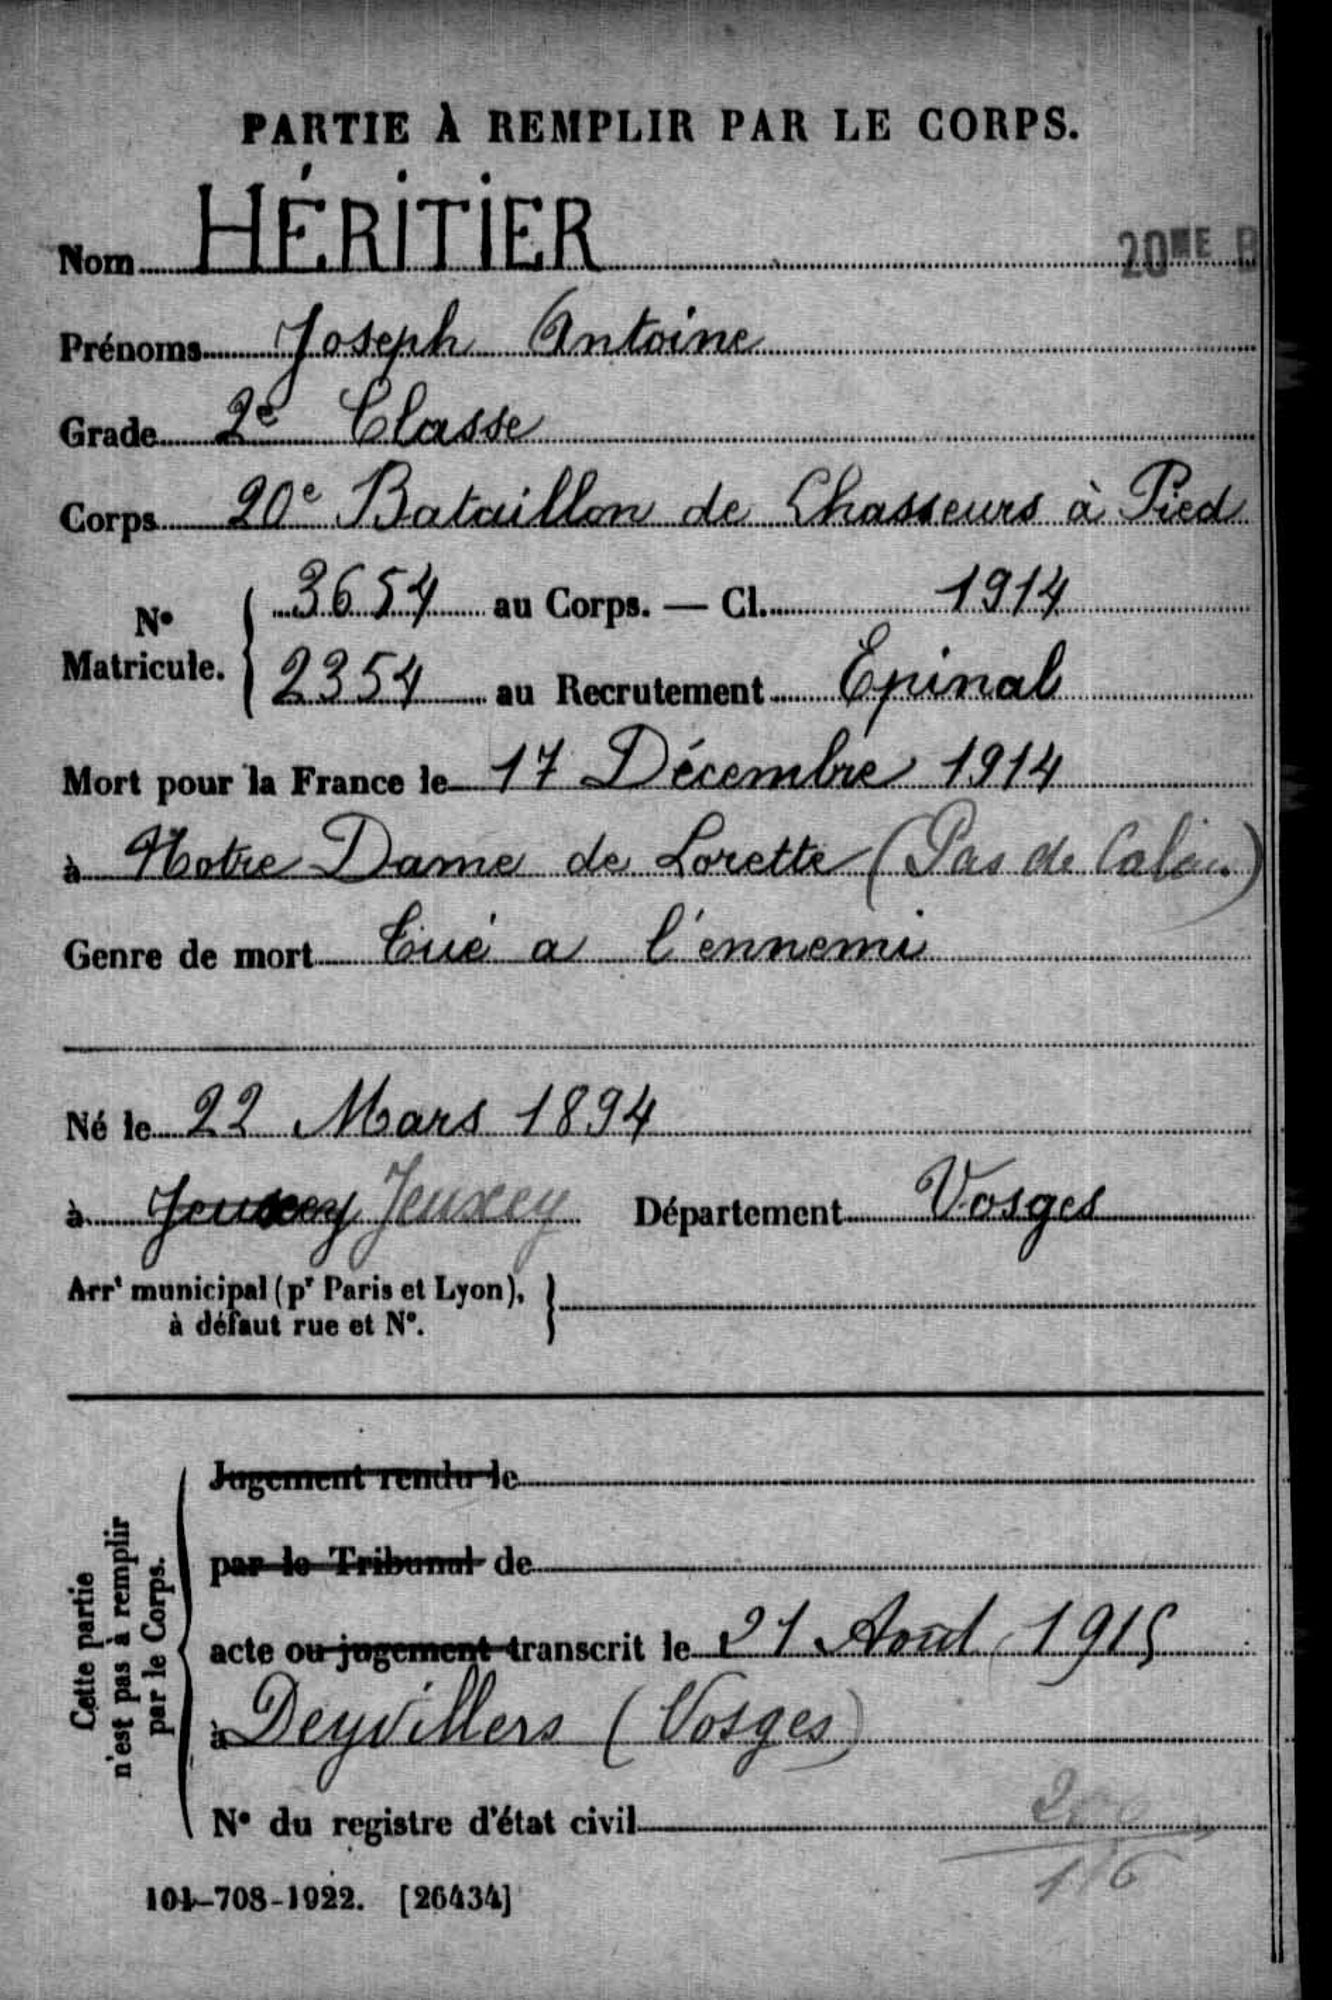 PARTIE À REMPLIR PAR LE CORPS.
Nom HÉRITIER
20ME B
Prénoms Joseph Antoine
Grade 2e Classe
Corps 20e Bataillon de Chasseurs à Pied
N° Matricule. { 3654 au Corps. — Cl. 1914
2354 au Recrutement Epinal
Mort pour la France le 17 Décembre 1914
à Notre Dame de Lorette (Pas de Calais)
Genre de mort Tué a l'ennemi
Né le 22 Mars 1894
à Jeuxey Jeuxey Département Vosges
Arrt municipal (pr Paris et Lyon), }
à défaut rue et N°.
Cette partie
n'est pas à remplir
par le Corps.
Jugement rendu le
par le Tribunal de
acte ou jugement transcrit le 21 Août 1915
à Deyvillers (Vosges)
N° du registre d'état civil
101-708-1922. [26434]